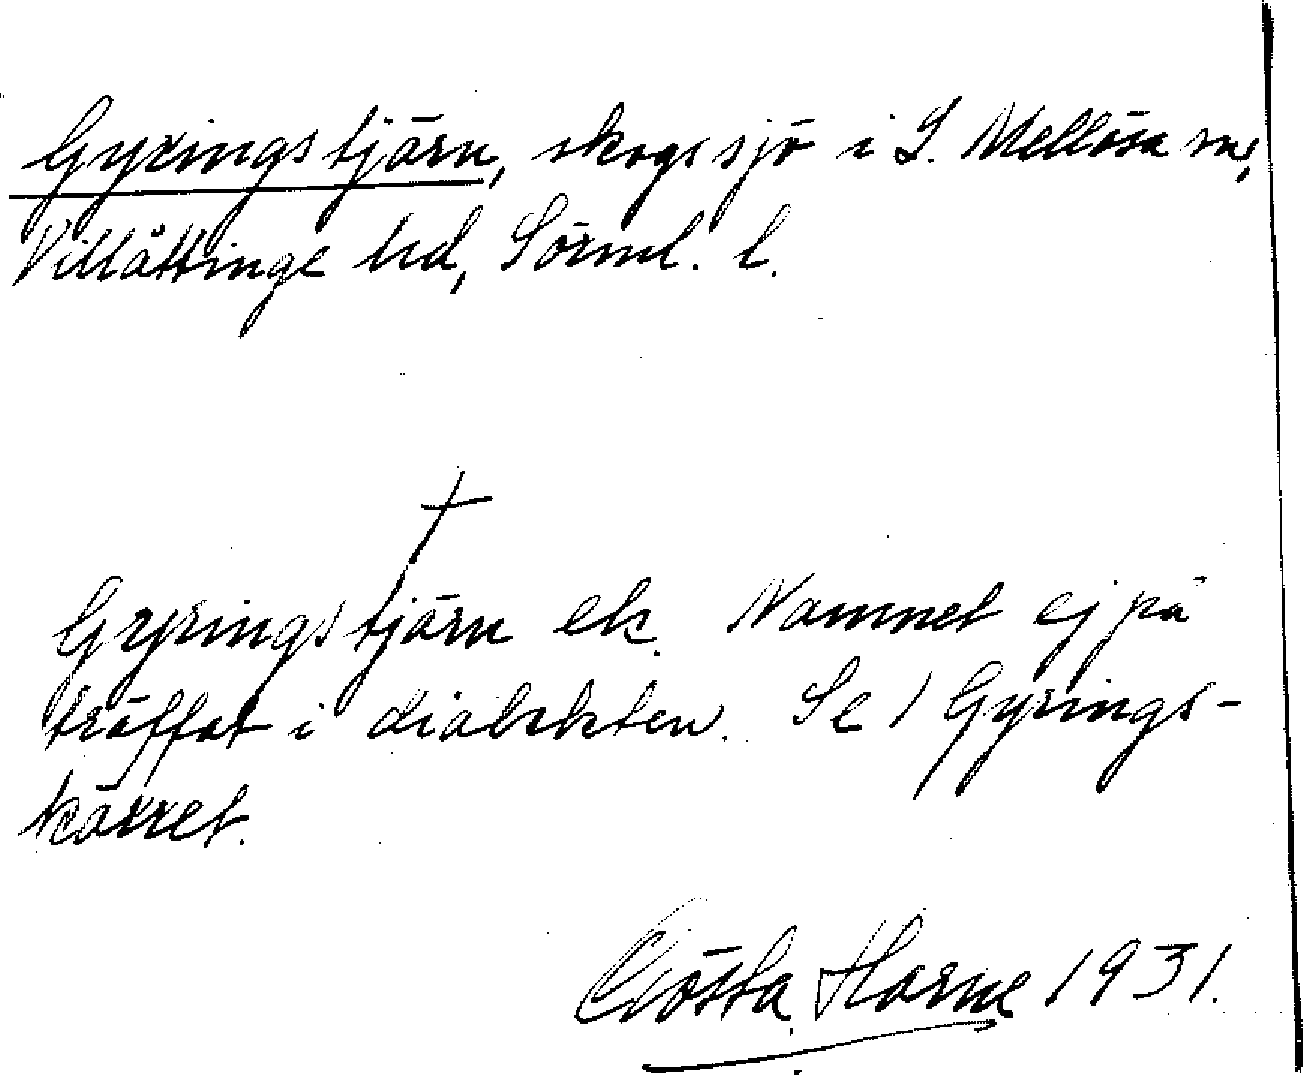 Gyringstjärn, skogssjö i S. Mellösa sn,
Villåttinge hd, Sörml. l.
†
Gyringstjärn ek. Namnet ej på
träffat i dialekten. Se 1 Gyrings-
kärret.
Gösta Horne 1931.